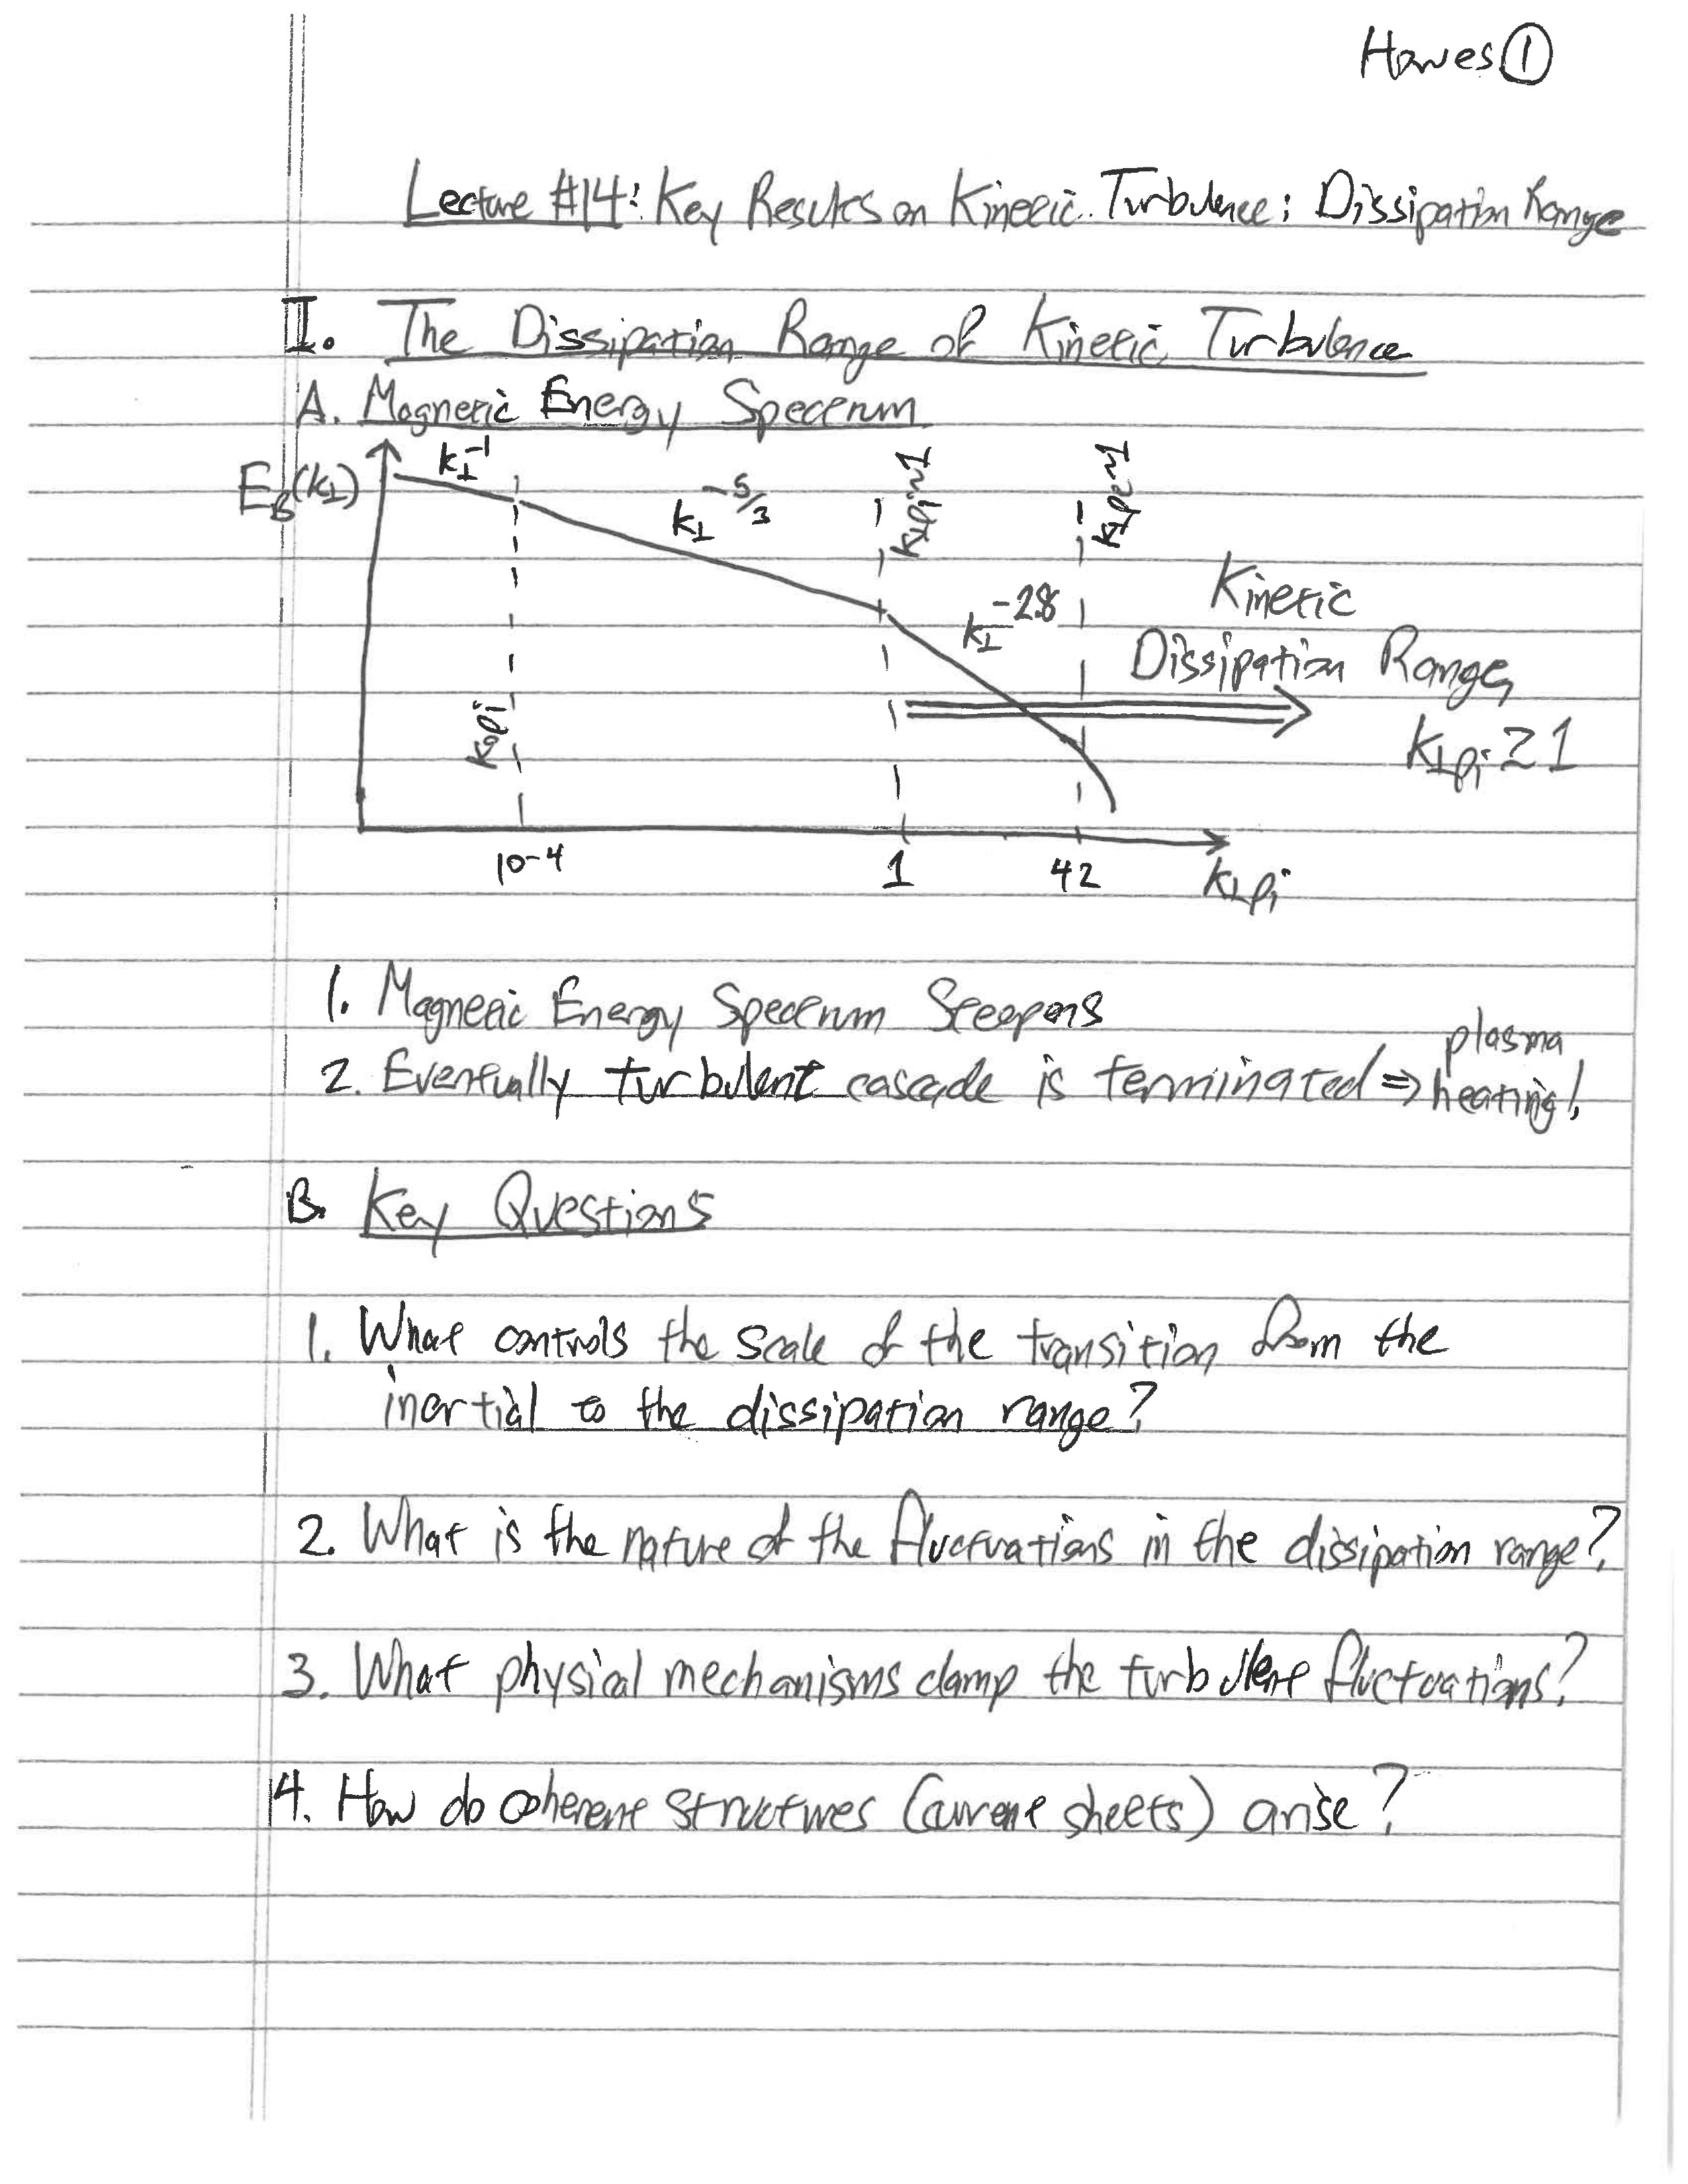 Howes ①
Lecture #14: Key Results on Kinetic Turbulence: Dissipation Range
II. The Dissipation Range of Kinetic Turbulence
A. Magnetic Energy Spectrum
E_B(k⊥)
k⊥^-1
k⊥^-5/3
k⊥ρi~1
k⊥ρe~1
k⊥^-2.8
Kinetic
Dissipation Range,
k⊥ρi≳1
k₀ρi
10-4
1
42
k⊥ρi
1. Magnetic Energy Spectrum Steepens
2. Eventually turbulent cascade is terminated ⇒ plasma heating!
B. Key Questions
1. What controls the scale of the transition from the
inertial to the dissipation range?
2. What is the nature of the fluctuations in the dissipation range?
3. What physical mechanisms damp the turbulent fluctuations?
4. How do coherent structures (current sheets) arise?